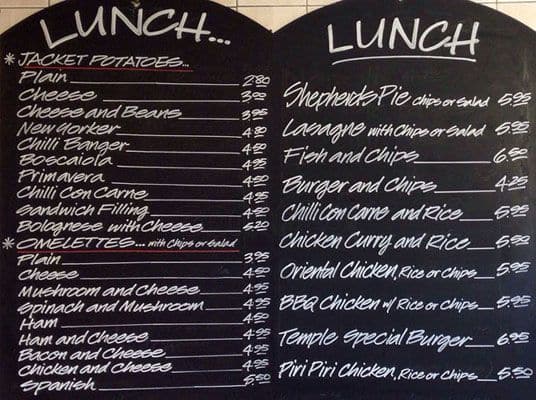 LUNCH...
* JACKET POTATOES...
Plain 2.80
Cheese
Cheese and Beans 3.95
New Yorker
Chilli Banger 4.80
Boscaiola 4.95
Primavera 4.50
Chilli Con Carne 4.95
Sandwich Filling 4.50
Bolognese with Cheese 5.20
* OMELETTES... with Chips or Salad
Plain 3.95
Cheese 4.50
Mushroom and Cheese 4.95
Spinach and Mushroom 4.95
Ham 4.50
Ham and Cheese 4.95
Bacon and Cheese 4.95
Chicken and Cheese 4.95
Spanish 5.50
LUNCH
Shepherds Pie Chips or Salad 5.95
Lasagne with Chips or Salad 5.95
Fish and Chips 6.50
Burger and Chips 4.25
Chilli Con Carne and Rice 5.95
Chicken Curry and Rice 5.50
Oriental Chicken, Rice or Chips 5.95
BBQ Chicken w/ Rice or Chips 5.95
Temple Special Burger 6.95
Piri Piri Chicken, Rice or Chips 5.50